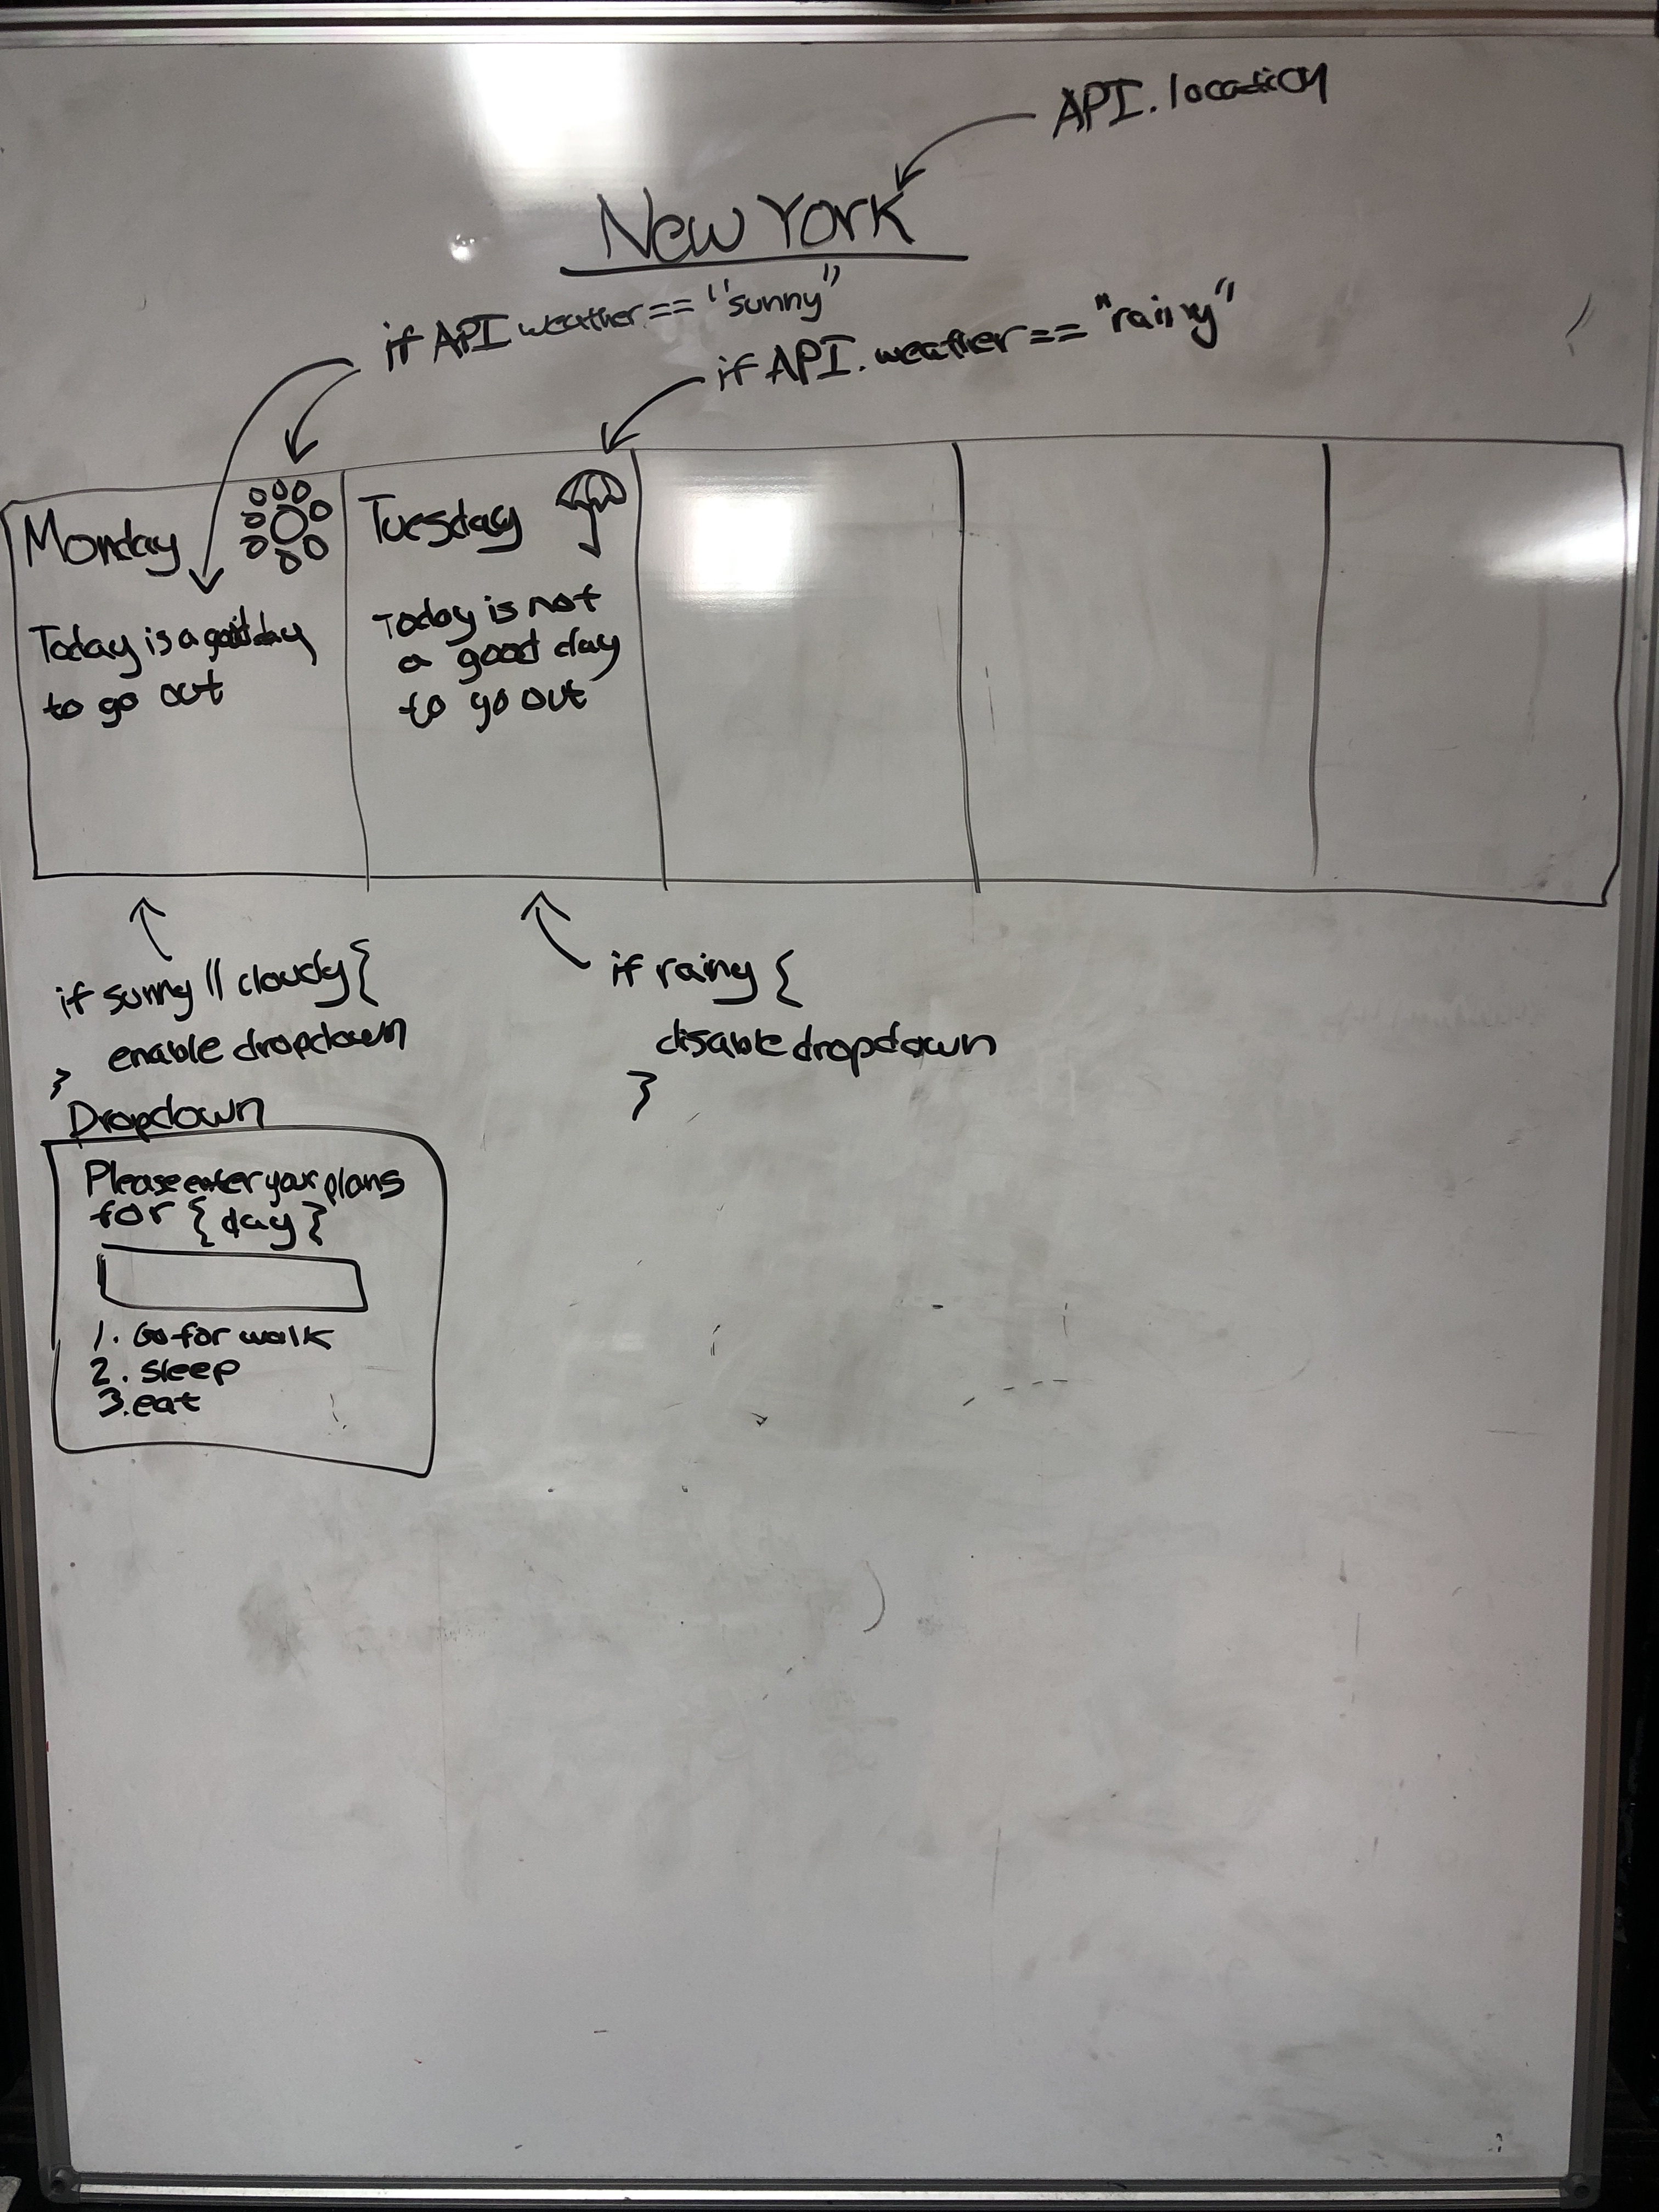 API.location
New York
if API weather == "sunny"
if API. weather == "rainy"
Monday
Today is a good day
to go out
Tuesday
Today is not
a good day
to go out
if sunny || cloudy {
enable dropdown
}
if rainy {
disable dropdown
}
Dropdown
Please enter your plans
for { day }
1. Go for walk
2. sleep
3. eat